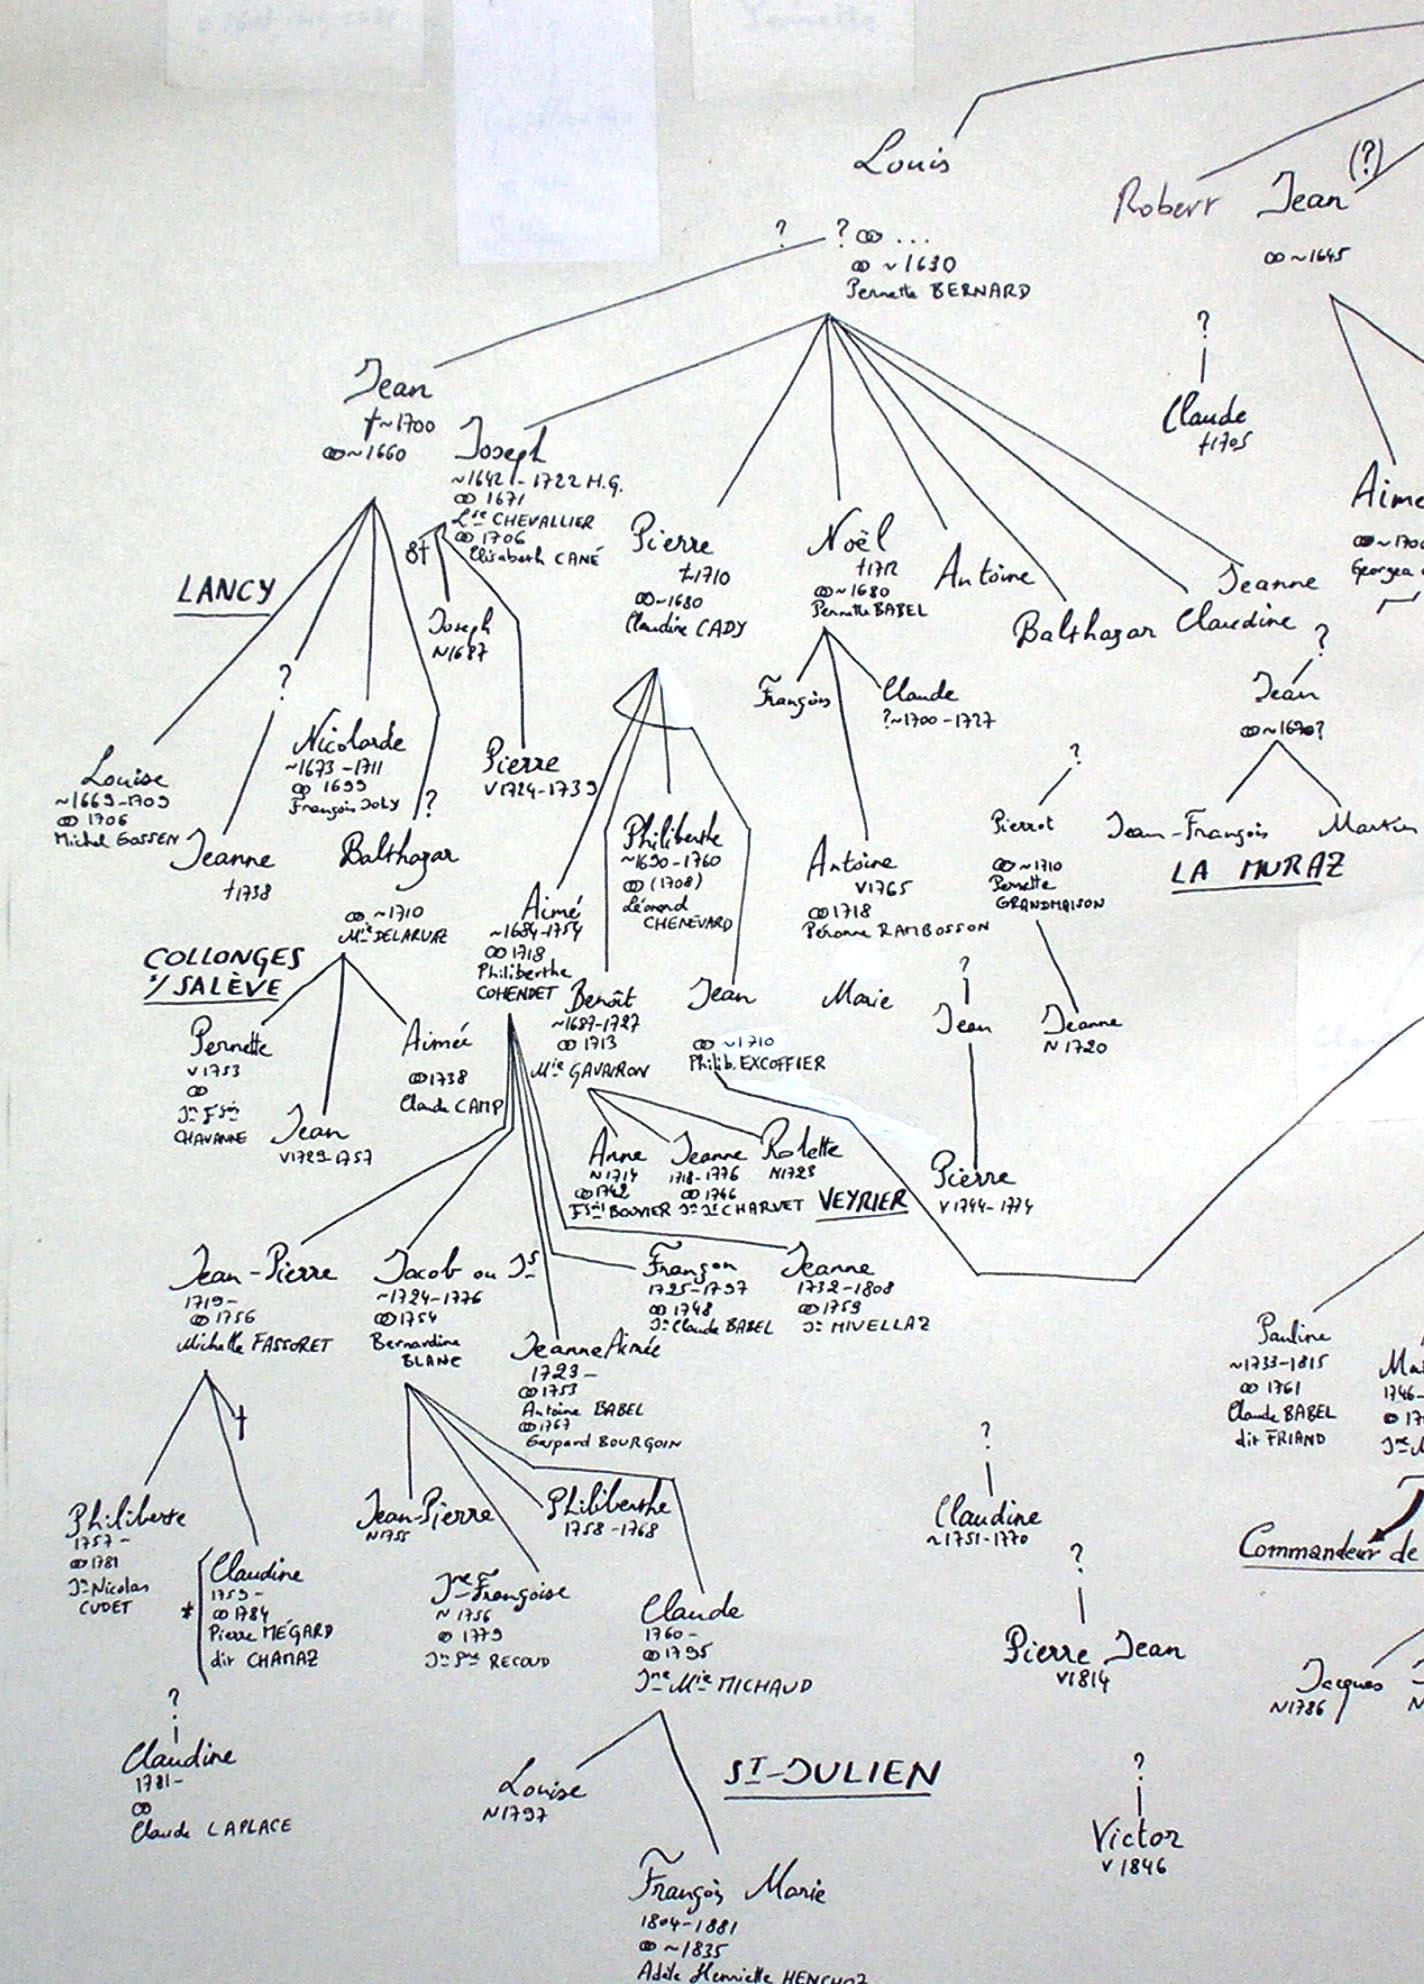 Louis
? ? ⚭ ...
⚭ ~1630
Pernette BERNARD
Robert
Jean (?)
⚭ ~1645
?
Claude
†1705
Jean
†~1700
⚭ ~1660
Joseph
~1642 - 1722 H.G.
⚭ 1671
Lse CHEVALLIER
⚭ 1706
Elisabeth CANÉ
8†
Pierre
†~1710
⚭ ~1680
Claudine CADY
Noël
†1712
⚭ ~1680
Pernette BABEL
Antoine
Balthazar
Claudine
Jeanne
Aimé
⚭ ~170
Georgea
LANCY
Joseph
N1687
?
Jean
⚭ ~1670?
François
Claude
?~1700-1727
?
Nicolarde
~1673-1711
⚭ 1699
François JOLY
Pierre
V1724-1739
Louise
~1669-1709
⚭ 1706
Michel GOSSEN
Jeanne
†1738
?
Balthazar
⚭ ~1710
Mie DELARUAZ
Philiberthe
~1690-1760
⚭ (1708)
Léonard
CHENEVARD
Antoine
V1765
⚭ 1718
Péronne RAMBOSSON
?
Pierrot
⚭ ~1710
Pernette
GRANDMAISON
Jean-François
Martin
LA MURAZ
Aimé
~1684-1754
⚭ 1718
Philiberthe
COHENDET
COLLONGES
s/ SALÈVE
Benoît
~1687-1727
⚭ 1713
Mie GAVAIRON
Jean
⚭ ~1710
Philib. EXCOFFIER
Marie
?
Jean
Jeanne
N 1720
Pernette
V1753
⚭
Jn Fçois
CHAVANNE
Jean
V1729-1757
Aimée
⚭ 1738
Claude CAMP
Anne
N 1714
⚭ 1742
Fçois BOUVIER
Jeanne
1718-1776
⚭ 1746
Jn Js CHARVET
Rolette
N1723
VEYRIER
Pierre
V1744-1774
Jean-Pierre
1719-
⚭ 1756
Michelle FASSORET
Jacob ou Js
~1724-1776
⚭ 1754
Bernardine
BLANC
Jeanne Aimée
1723-
⚭ 1753
Antoine BABEL
⚭ 1767
Gaspard BOURGOIN
Françon
1725-1797
⚭ 1748
Jn Claude BABEL
Jeanne
1732-1808
⚭ 1759
Jn MIVELLAZ
Pauline
~1733-1815
⚭ 1761
Claude BABEL
dit FRIAND
Ma
1746-
⚭ 17
†
Philiberte
1757-
⚭ 1781
Jn Nicolas
CUDET
*
Claudine
1759-
⚭ 1784
Pierre MÉGARD
dit CHAMAZ
Jean-Pierre
N1755
Jne Françoise
N 1756
⚭ 1779
Jn Pre RECOUD
Philiberthe
1758-1768
Claude
1760-
⚭ 1795
Jne Mie MICHAUD
?
Claudine
~1751-1770
Commandeur de
?
Pierre Jean
V1814
Jacques
N1786
?
Claudine
1781-
⚭
Claude LAPLACE
Louise
N1797
ST-JULIEN
?
Victor
V 1846
François Marie
1804-1881
⚭ ~1835
Adèle Henriette HENCHOZ